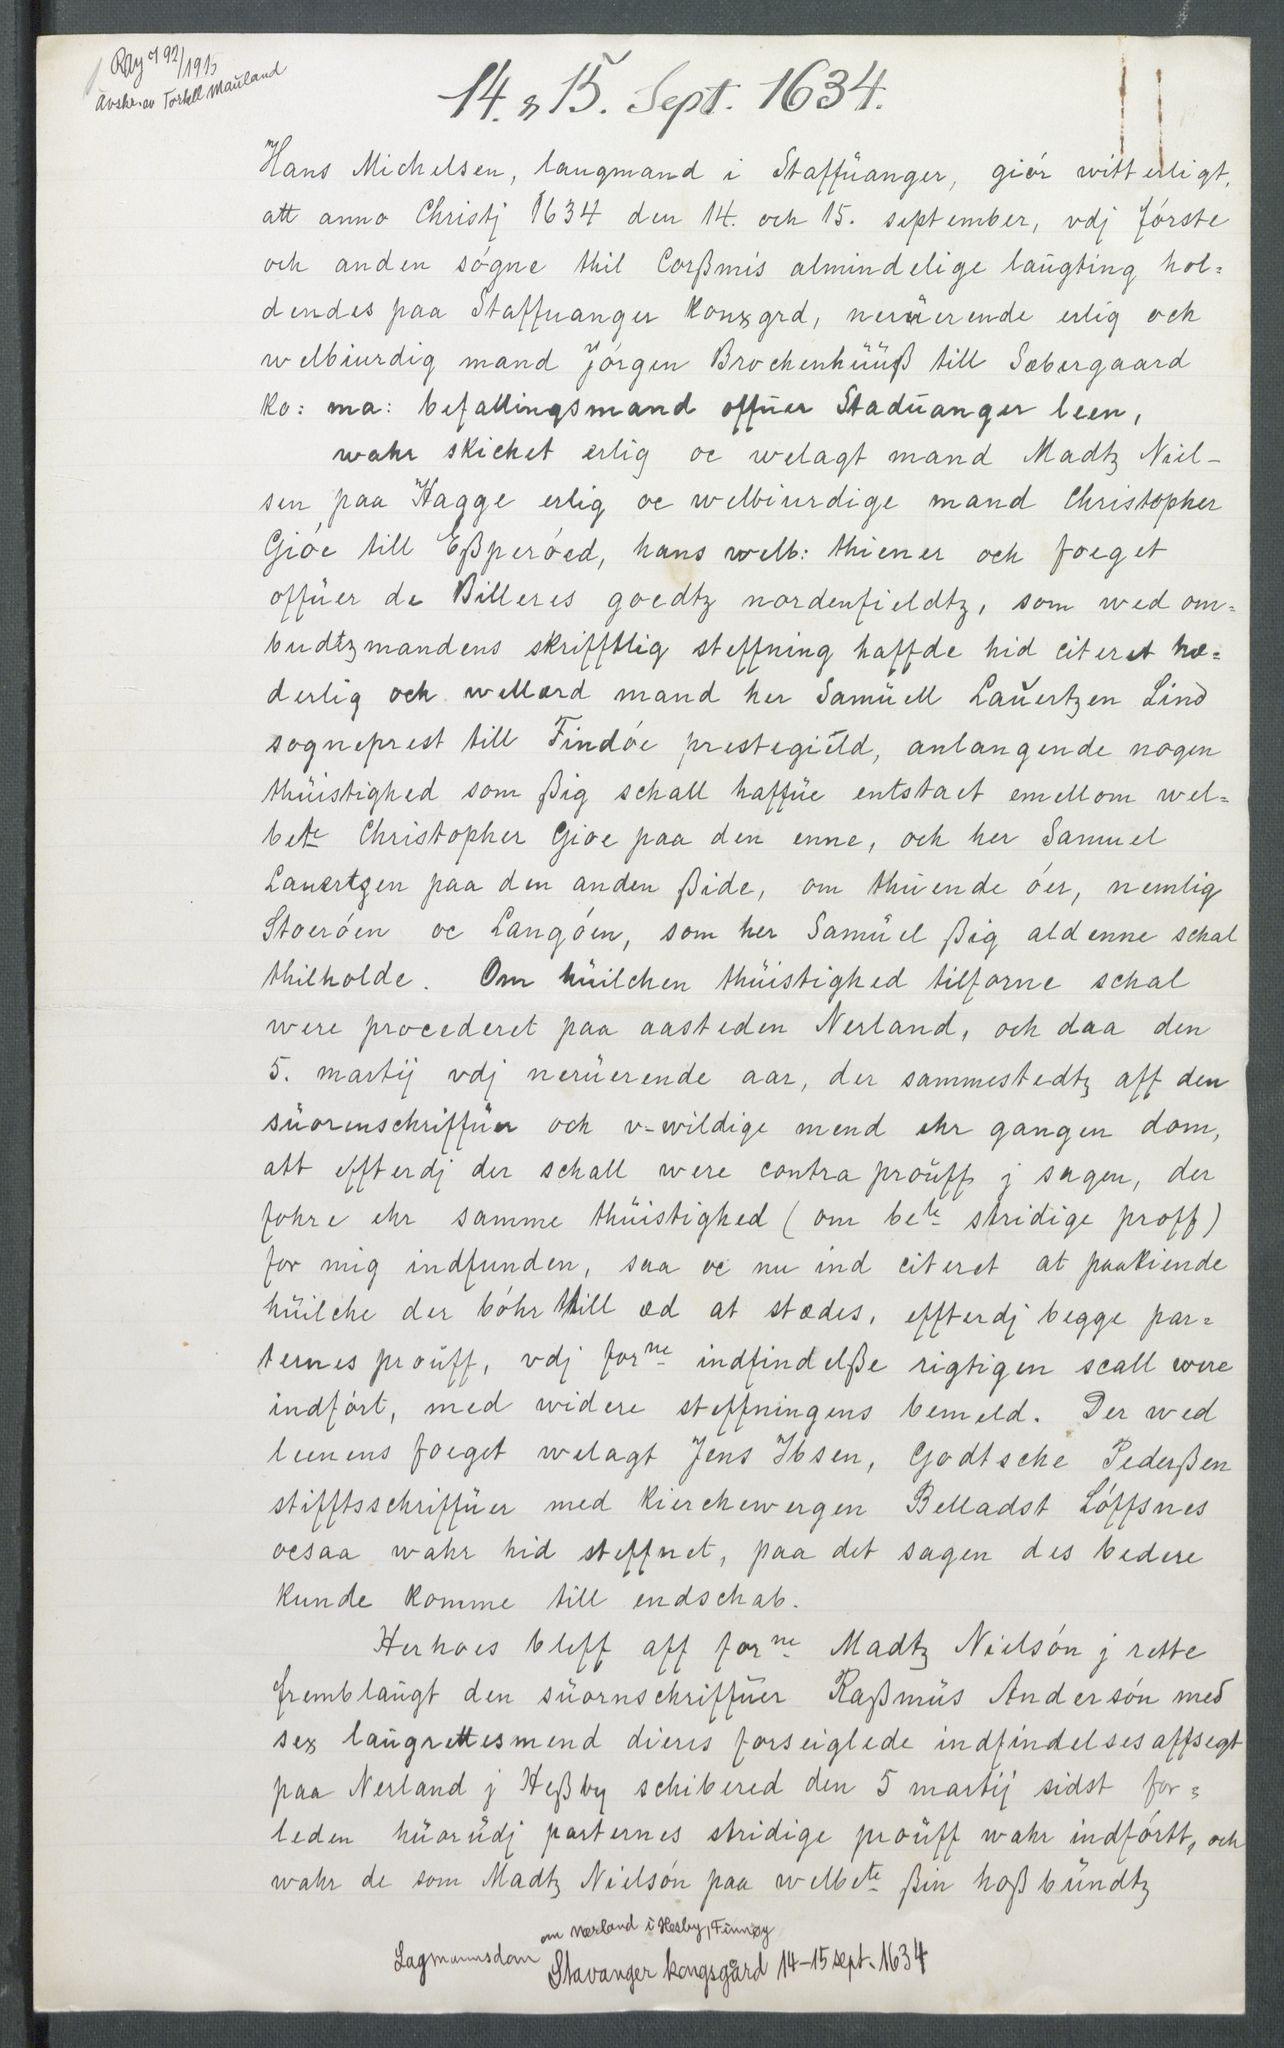 Avskr. av Torkell Mauland
14. & 15. Sept. 1634.
Hans Michelsen, laugmand i Staffüanger, giór witterligt,
att anno Christj 1634 den 14. och 15. september, vdj fórste
och anden sógne thil Corßmis almindelige laügting hol=
dendes paa Staffuanger Konsgrd, nerüerende erlig och
welbiurdig mand Jórgen Brockenhüüß till Sæbergaard
ko: ma: befallingsmand offüer Stadüanger leen,
wahr skicket erlig oc welagt mand Madtz Niel-
sen paa Hagge erlig oc welbiurdige mand Christopher
Gióe till Eßperóed, hans welb: thiener och foeget
offüer de Billeres goedtz nordenfieldtz, som wed om=
budtzmandens skrifftlig steffning haffde hid citeret hæ=
derlig och wellærd mand her Samüell Laüertzen Lind
sogneprest till Findóe prestegield, anlangende nogen
thüistighed som ßig schall haffüe entstaet emellom wel=
bete Christopher Gioe paa den enne, och her Samuel
Lauertzen paa den anden ßide, om thüende óer, nemlig
Stoeróen oc Langóen, som her Samüel ßig aldenne schal
thilholde. Om hüilchen thüistighed tilforne schal
were procederet paa aasteden Nerland, och daa den
5. martij vdj nerüerende aar, der sammestedtz aff den
süorenschriffüer och v-wildige mend ehr gangen dom,
att effterdj der schall were contra proüff j sagen, der
fohre ehr samme thüistighed (om bete stridige proff)
for mig indfunden, saa oc nu ind citeret at paakiende
hüilche der bóhr thill æd at stædes, effterdj begge par=
ternes proüff, vdj forne indfindelße rigtigen scall were
indfórt, med widere steffningens bemeld. Der wed
leenens foeget welagt Jens Ibsen, Godtsche Pederßen
stifftsschriffüer med kierchewergen Belladst Lóffsnes
ocsaa wahr hid steffnet, paa det sagen des bedere
kunde komme till endschab.
Herhoes bleff aff forne Madtz Nielsón j rette
fremblaügt den süornschriffüer Raßmüs Andersón med
sex laügrettesmend dieris forseiglede indfindelses affsegt
paa Nerland j Heßby schibered den 5 martij sidst for=
leden hüorüdj parternes stridige proüff wahr indfórtt, och
wahr de som Madtz Nielsón paa welbete ßin hoßbündtz
om Nærland i Hesby, Finnøy
Lagmannsdom Stavanger kongsgård 14-15 sept. 1634